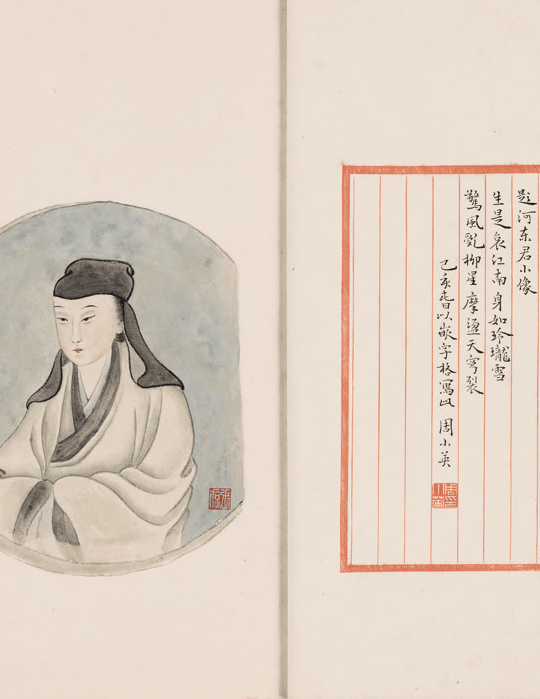 題河东君小像
生是哀江南身如玲瓏雪
驚風亂柳星摩盪天穹裂
己亥 以嵌字格寫此 周小英